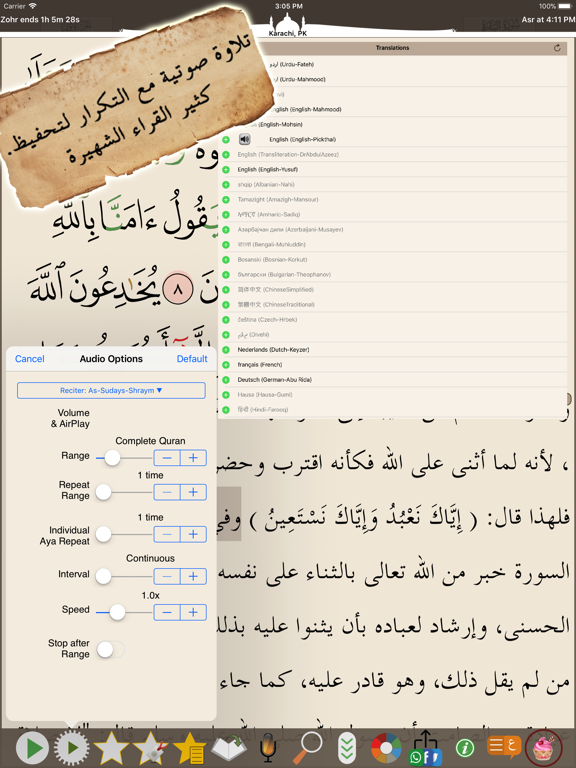 Carrier
3:05 PM
100%
Zohr ends 1h 5m 28s
Asr at 4:11 PM
Karachi, PK
تلاوة صوتية مع التكرار لتحفيظ.
كثير القراء الشهيرة
Translations
اردو (Urdu-Fateh)
(Urdu-Mahmood)
English (English-Mahmood)
(English-Mohsin)
English (English-Pickthal)
English (Transliteration-DrAbdulAzeez)
English (English-Yusuf)
shqip (Albanian-Nahi)
Tamazight (Amazigh-Mansour)
አማርኛ (Amharic-Sadiq)
Азәрбајҹан дили (Azerbaijani-Musayev)
বাংলা (Bengali-Muhiuddin)
Bosanski (Bosnian-Korkut)
български (Bulgarian-Theophanov)
简体中文 (ChineseSimplified)
繁體中文 (ChineseTraditional)
čeština (Czech-Hrbek)
(Divehi)
Nederlands (Dutch-Keyzer)
français (French)
Deutsch (German-Abu Rida)
Hausa (Hausa-Gumi)
हिन्दी (Hindi-Farooq)
يَقُولُ ءَامَنَّا بِٱللَّهِ
٨ يُخَٰدِعُونَ ٱللَّهَ
Cancel
Audio Options
Default
Reciter: As-Sudays-Shraym ▼
Volume
& AirPlay
Complete Quran
Range
1 time
Repeat
Range
1 time
Individual
Aya Repeat
Continuous
Interval
1.0x
Speed
Stop after
Range
، لأنه لما أثنى على الله فكأنه اقترب وحضر
فلهذا قال: ( إِيَّاكَ نَعْبُدُ وَإِيَّاكَ نَسْتَعِينُ ) وفي
السورة خبر من الله تعالى بالثناء على نفسه
الحسنى، وإرشاد لعباده بأن يثنوا عليه بذلك
من لم يقل ذلك، وهو قادر عليه، كما جاء